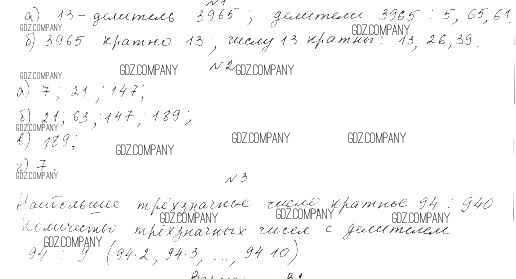 №1
а) 13 - делитель 3965; делители 3965: 5, 65, 61
GDZ.COMPANY GDZ.COMPANY
б) 3965 кратно 13, числу 13 кратны: 13, 26, 39.
№2
GDZ.COMPANY GDZ.COMPANY GDZ.COMPANY
а) 7; 21; 147;
б) 21, 63; 147, 189;
GDZ.COMPANY
в) 189;
GDZ.COMPANY GDZ.COMPANY GDZ.COMPANY
г) 7
GDZ.COMPANY
№3
Наибольшее трёхзначное число кратное 94: 940
GDZ.COMPANY GDZ.COMPANY GDZ.COMPANY
Количество трёхзначных чисел с делителем
GDZ.COMPANY
94: 9 (94·2, 94·3, ..., 94·10)